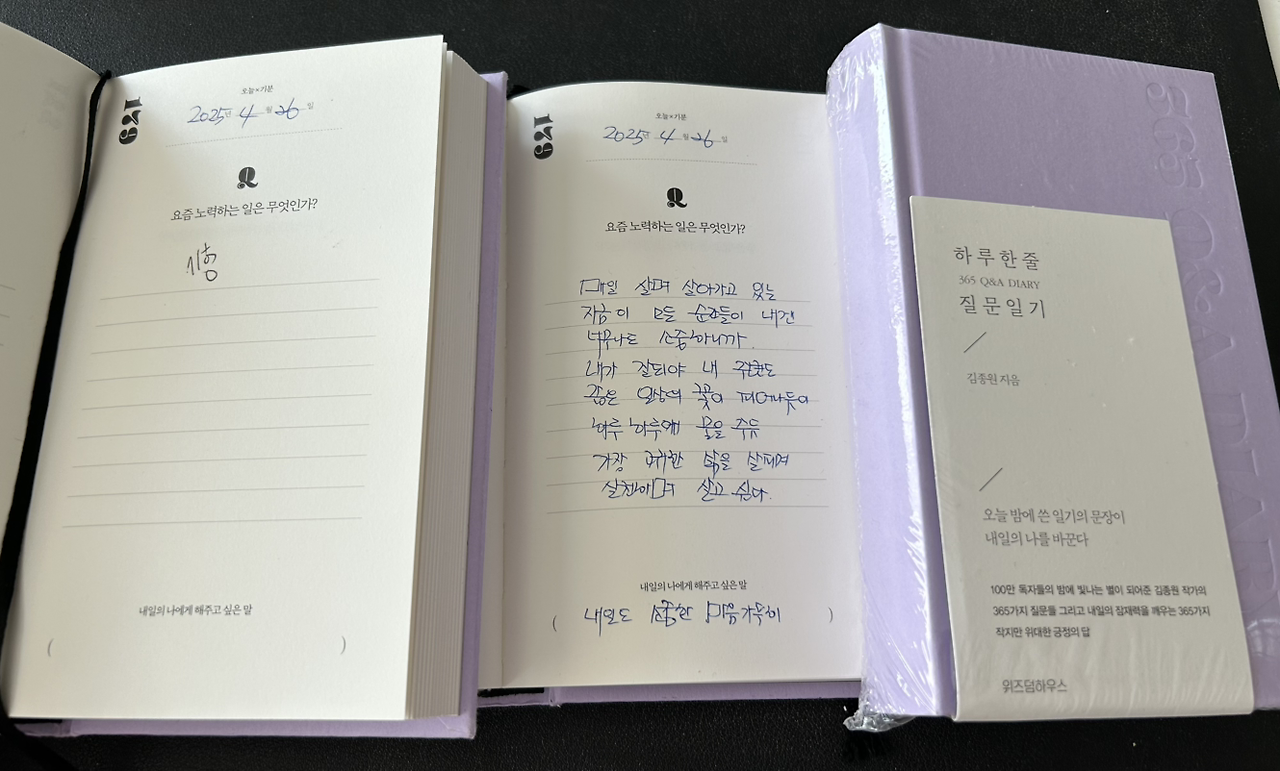 179
오늘×기분
2025년 4월 26일
Q
요즘 노력하는 일은 무엇인가?
시험
내일의 나에게 해주고 싶은 말
( )
179
오늘×기분
2025년 4월 26일
Q
요즘 노력하는 일은 무엇인가?
매일 살며 살아가고 있는
지금 이 모든 순간들이 내겐
너무나도 소중하니까.
내가 잘되야 내 주변도
좋은 일상의 꽃이 피어나듯이
하루 하루에 물을 주듯
가장 귀한 삶을 살피며
실천하며 살고 싶다.
내일의 나에게 해주고 싶은 말
( 내일도 소중한 마음가득히 )
365 Q&A DIARY
하루 한 줄
365 Q&A DIARY
질문 일기
김종원 지음
오늘 밤에 쓴 일기의 문장이
내일의 나를 바꾼다
100만 독자들의 밤에 빛나는 별이 되어준 김종원 작가의
365가지 질문들 그리고 내일의 잠재력을 깨우는 365가지
작지만 위대한 긍정의 답
위즈덤하우스